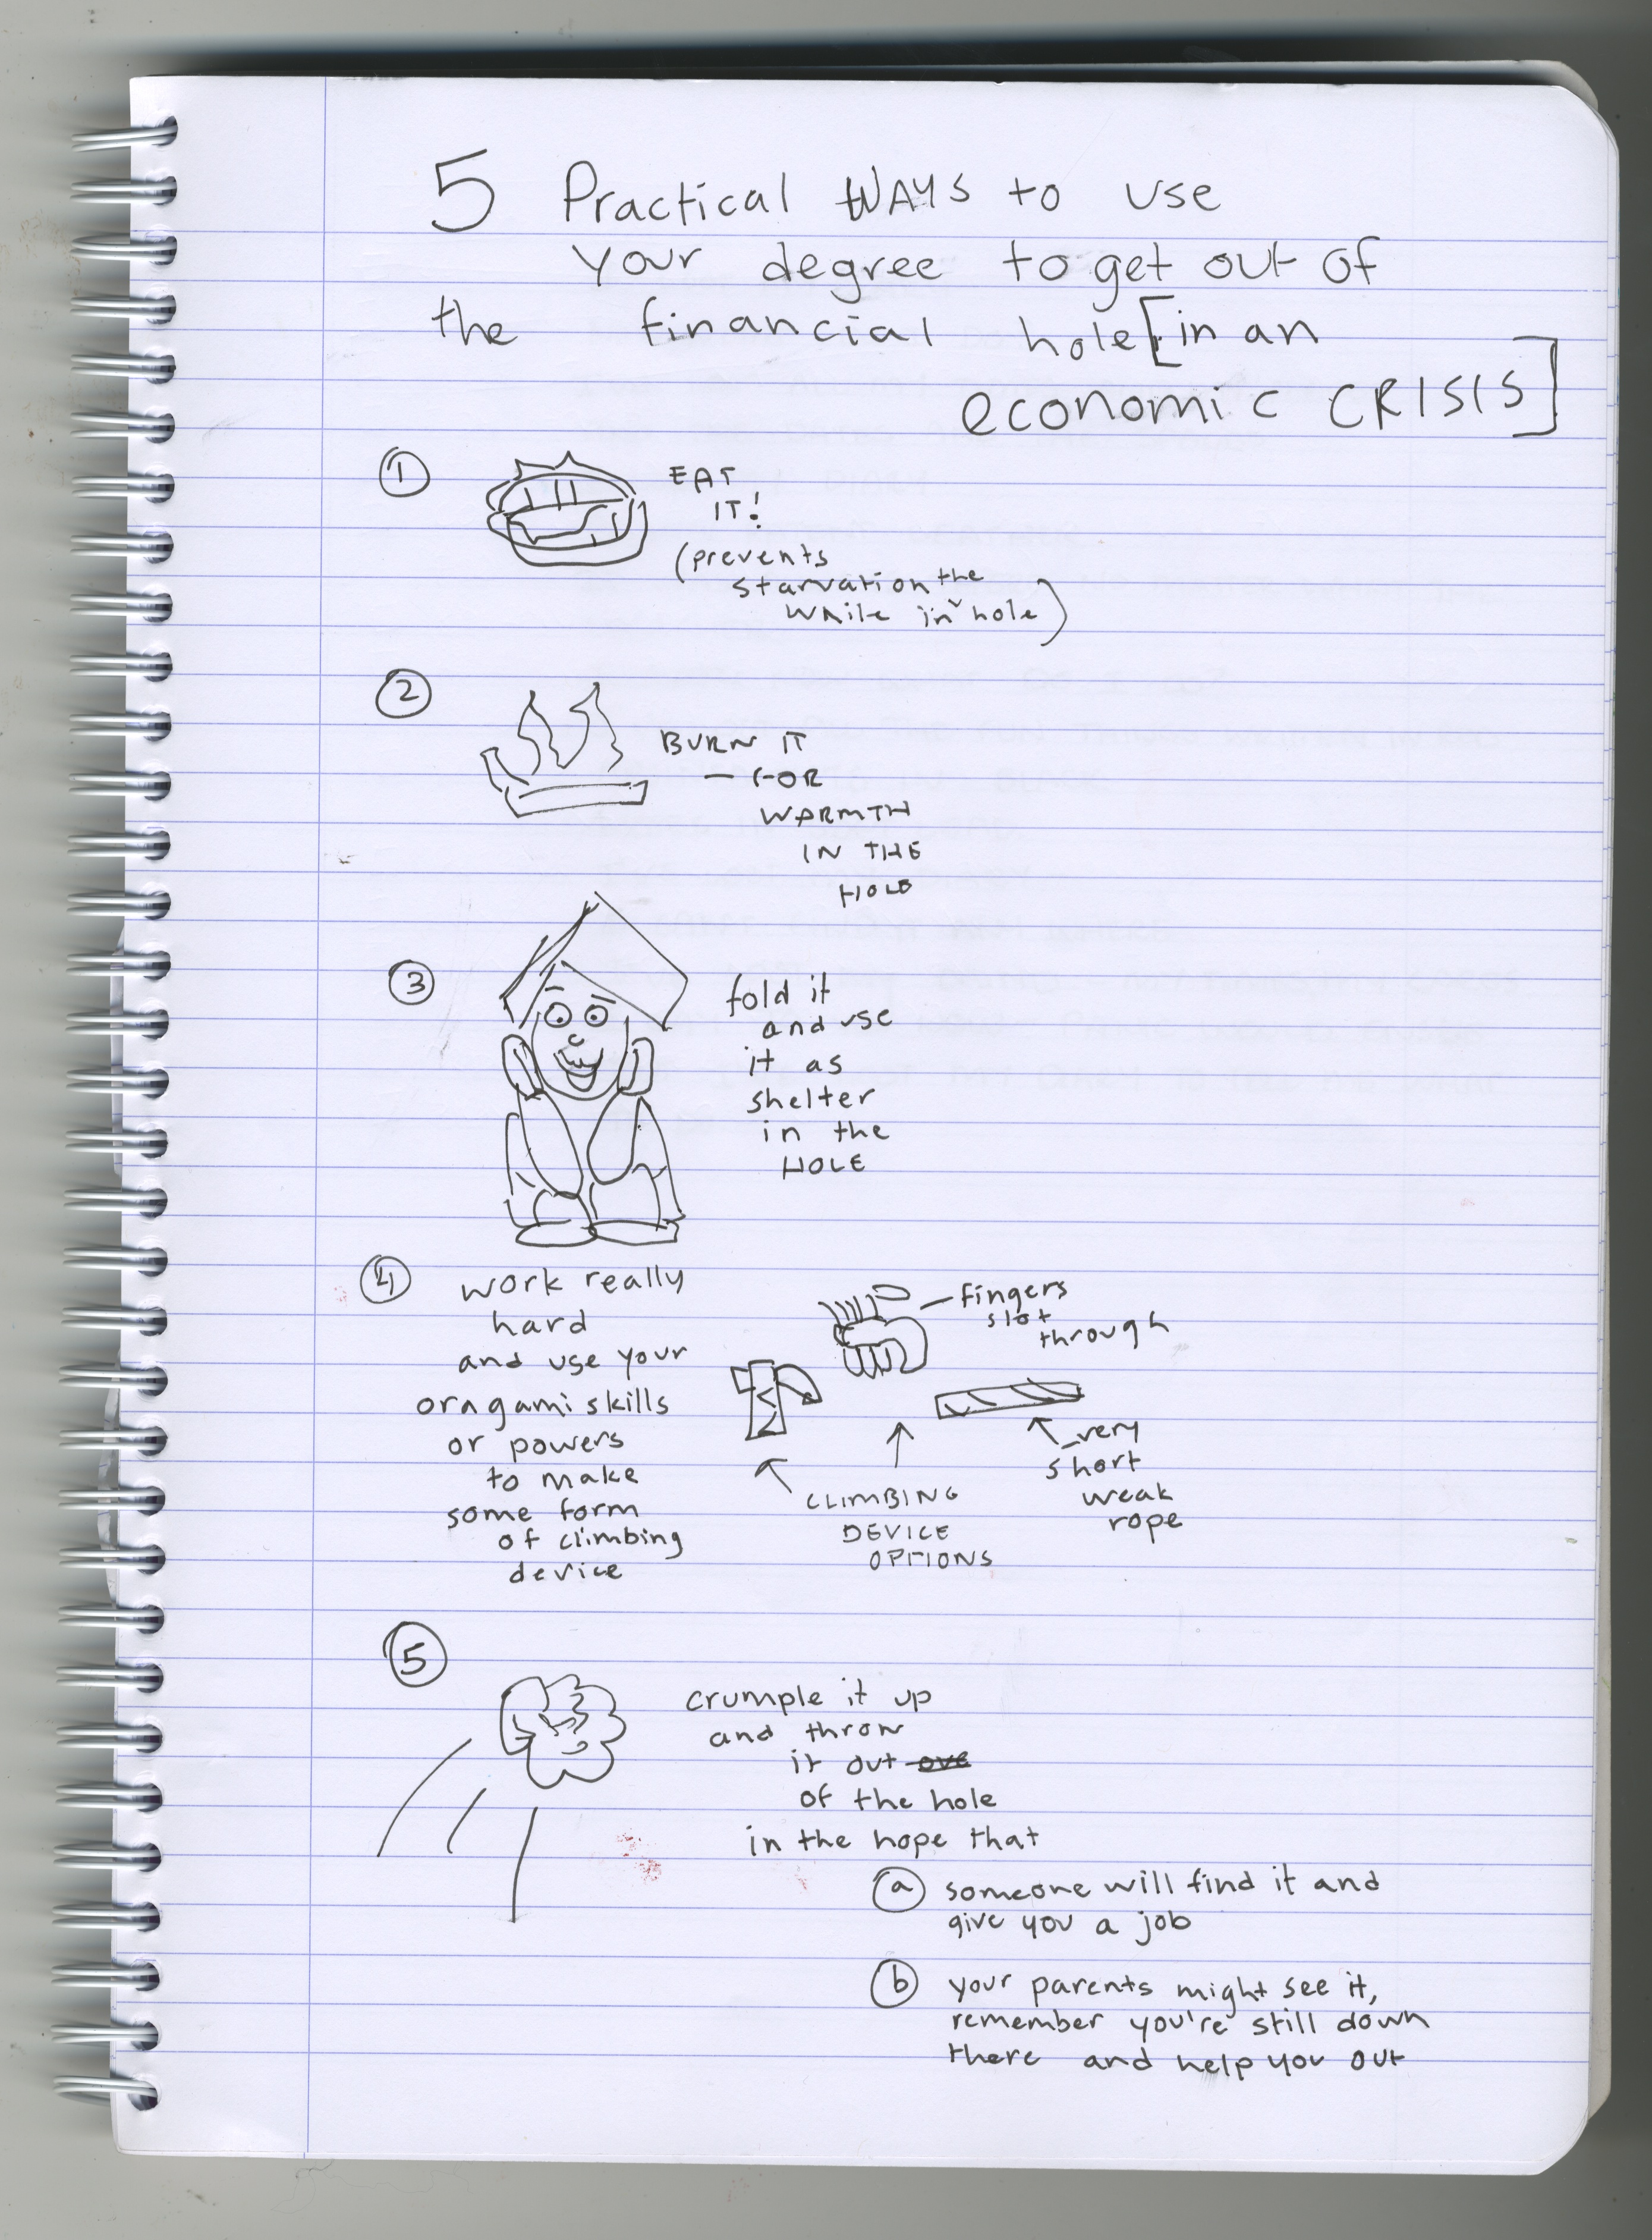 5 Practical WAYS to use
your degree to get out of
the financial hole [in an
economic CRISIS]
1
EAT
IT!
(prevents
starvation
while in the hole)
2
BURN IT
— FOR
WARMTH
IN THE
HOLE
3
fold it
and use
it as
shelter
in the
HOLE
4
work really
hard
and use your
oragami skills
or powers
to make
some form
of climbing
device
fingers
slot
through
CLIMBING
DEVICE
OPTIONS
very
short
weak
rope
5
crumple it up
and throw
it out ove
of the hole
in the hope that
a someone will find it and
give you a job
b your parents might see it,
remember you're still down
there and help you out